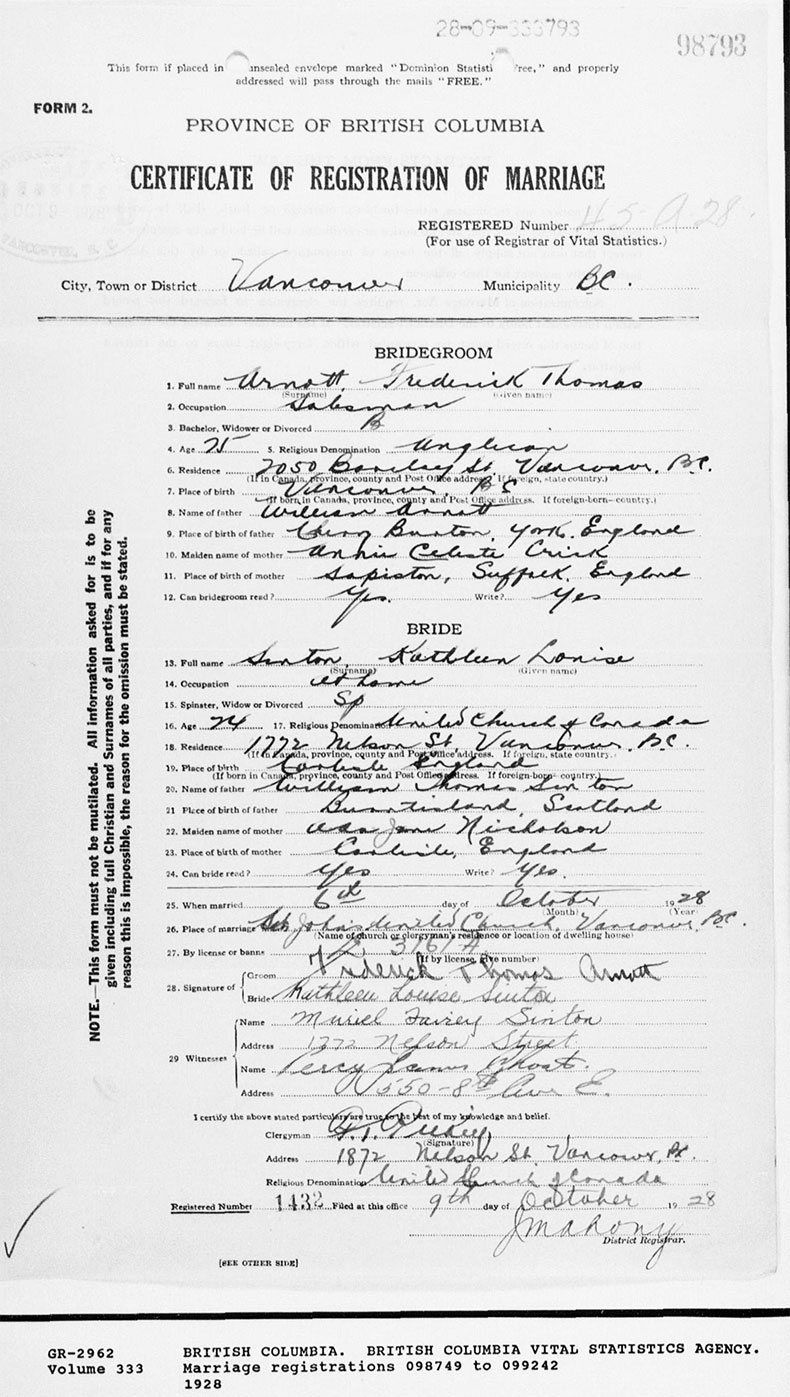 28-09-333793
98793
This form if placed in unsealed envelope marked "Dominion Statisti Free," and properly
addressed will pass through the mails "FREE."
FORM 2.
PROVINCE OF BRITISH COLUMBIA
CERTIFICATE OF REGISTRATION OF MARRIAGE
REGISTERED Number
(For use of Registrar of Vital Statistics.)
City, Town or District Vancouver Municipality BC.
BRIDEGROOM
1. Full name Arnott, Frederick Thomas
(Surname) (Given name)
2. Occupation Salesman
3. Bachelor, Widower or Divorced B
4. Age 25 5. Religious Denomination Anglican
6. Residence 2050 Barclay St, Vancouver, B.C.
(If in Canada, province, county and Post Office address. If foreign, state country.)
7. Place of birth Vancouver, BC
(If born in Canada, province, county and Post Office address. If foreign-born—country.)
8. Name of father William Arnott
9. Place of birth of father Burton, York, England
10. Maiden name of mother Annie Celeste Crick
11. Place of birth of mother Sapiston, Suffolk, England
12. Can bridegroom read? Yes. Write? Yes
BRIDE
13. Full name Sinton, Kathleen Louise
(Surname) (Given name)
14. Occupation at home
15. Spinster, Widow or Divorced Sp
16. Age 24 17. Religious Denomination United Church of Canada
18. Residence 1772 Nelson St, Vancouver, B.C.
(If in Canada, province, county and Post Office address. If foreign, state country.
19. Place of birth Carlisle England
(If born in Canada, province, county and Post Office address. If foreign-born—country.)
20. Name of father William Thomas Sinton
21 Place of birth of father Burntisland, Scotland
22. Maiden name of mother Jane Nicholson
23. Place of birth of mother Carlisle, England
24. Can bride read? Yes Write? Yes.
25. When married 6th day of October 1928
(Month) (Year)
26. Place of marriage St Johns United Church, Vancouver, BC.
(Name of church or clergyman's residence or location of dwelling house)
27. By license or banns L 3161 A
(If by license, give number)
28. Signature of
Groom Frederick Thomas Arnott
Bride Kathleen Louise Sinton
29 Witnesses
Name Muriel Fairey Sinton
Address 1772 Nelson Street
Name Percy James
Address 550-8th Ave E.
I certify the above stated particulars are true to the best of my knowledge and belief.
Clergyman
(Signature)
Address 1872 Nelson St, Vancouver, BC.
Religious Denomination United Church of Canada
Registered Number 1432 Filed at this office 9th day of October 1928
J Mahony
District Registrar.
[SEE OTHER SIDE]
NOTE.—This form must not be mutilated. All information asked for is to be
given including full Christian and Surnames of all parties, and if for any
reason this is impossible, the reason for the omission must be stated.
GR-2962 BRITISH COLUMBIA. BRITISH COLUMBIA VITAL STATISTICS AGENCY.
Volume 333 Marriage registrations 098749 to 099242
1928